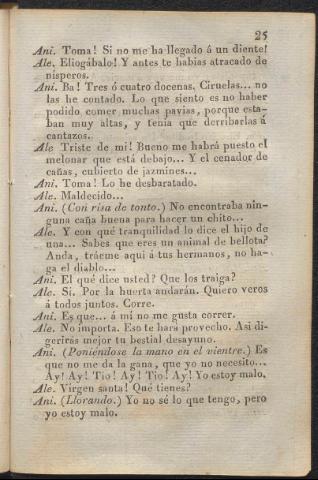 25
Ani. Toma! Si no me ha llegado á un diente!
Ale. Eliogábalo! Y antes te habias atracado de
nísperos.
Ani. Ba! Tres ó cuatro docenas. Ciruelas... no
las he contado. Lo que siento es no haber
podido comer muchas pavias, porque esta-
ban muy altas, y tenia que derribarlas á
cantazos.
Ale Triste de mí! Bueno me habrá puesto el
melonar que está debajo... Y el cenador de
cañas, cubierto de jazmines...
Ani. Toma! Lo he desbaratado.
Ale. Maldecido...
Ani. (Con risa de tonto.) No encontraba nin-
guna caña buena para hacer un chito...
Ale. Y con qué tranquilidad lo dice el hijo de
una... Sabes que eres un animal de bellota?
Anda, tráeme aquí á tus hermanos, no ha-
ga el diablo...
Ani. El qué dice usted? Que los traiga?
Ale. Sí. Por la huerta andarán. Quiero veros
á todos juntos. Corre.
Ani. Es que... á mí no me gusta correr.
Ale. No importa. Eso te hará provecho. Asi di-
gerirás mejor tu bestial desayuno.
Ani. (Poniéndose la mano en el vientre.) Es
que no me da la gana, que yo no necesito...
Ay! Ay! Tio! Ay! Tio! Ay! Yo estoy malo.
Ale. Vírgen santa! Qué tienes?
Ani. (Llorando.) Yo no sé lo que tengo, pero
yo estoy malo.